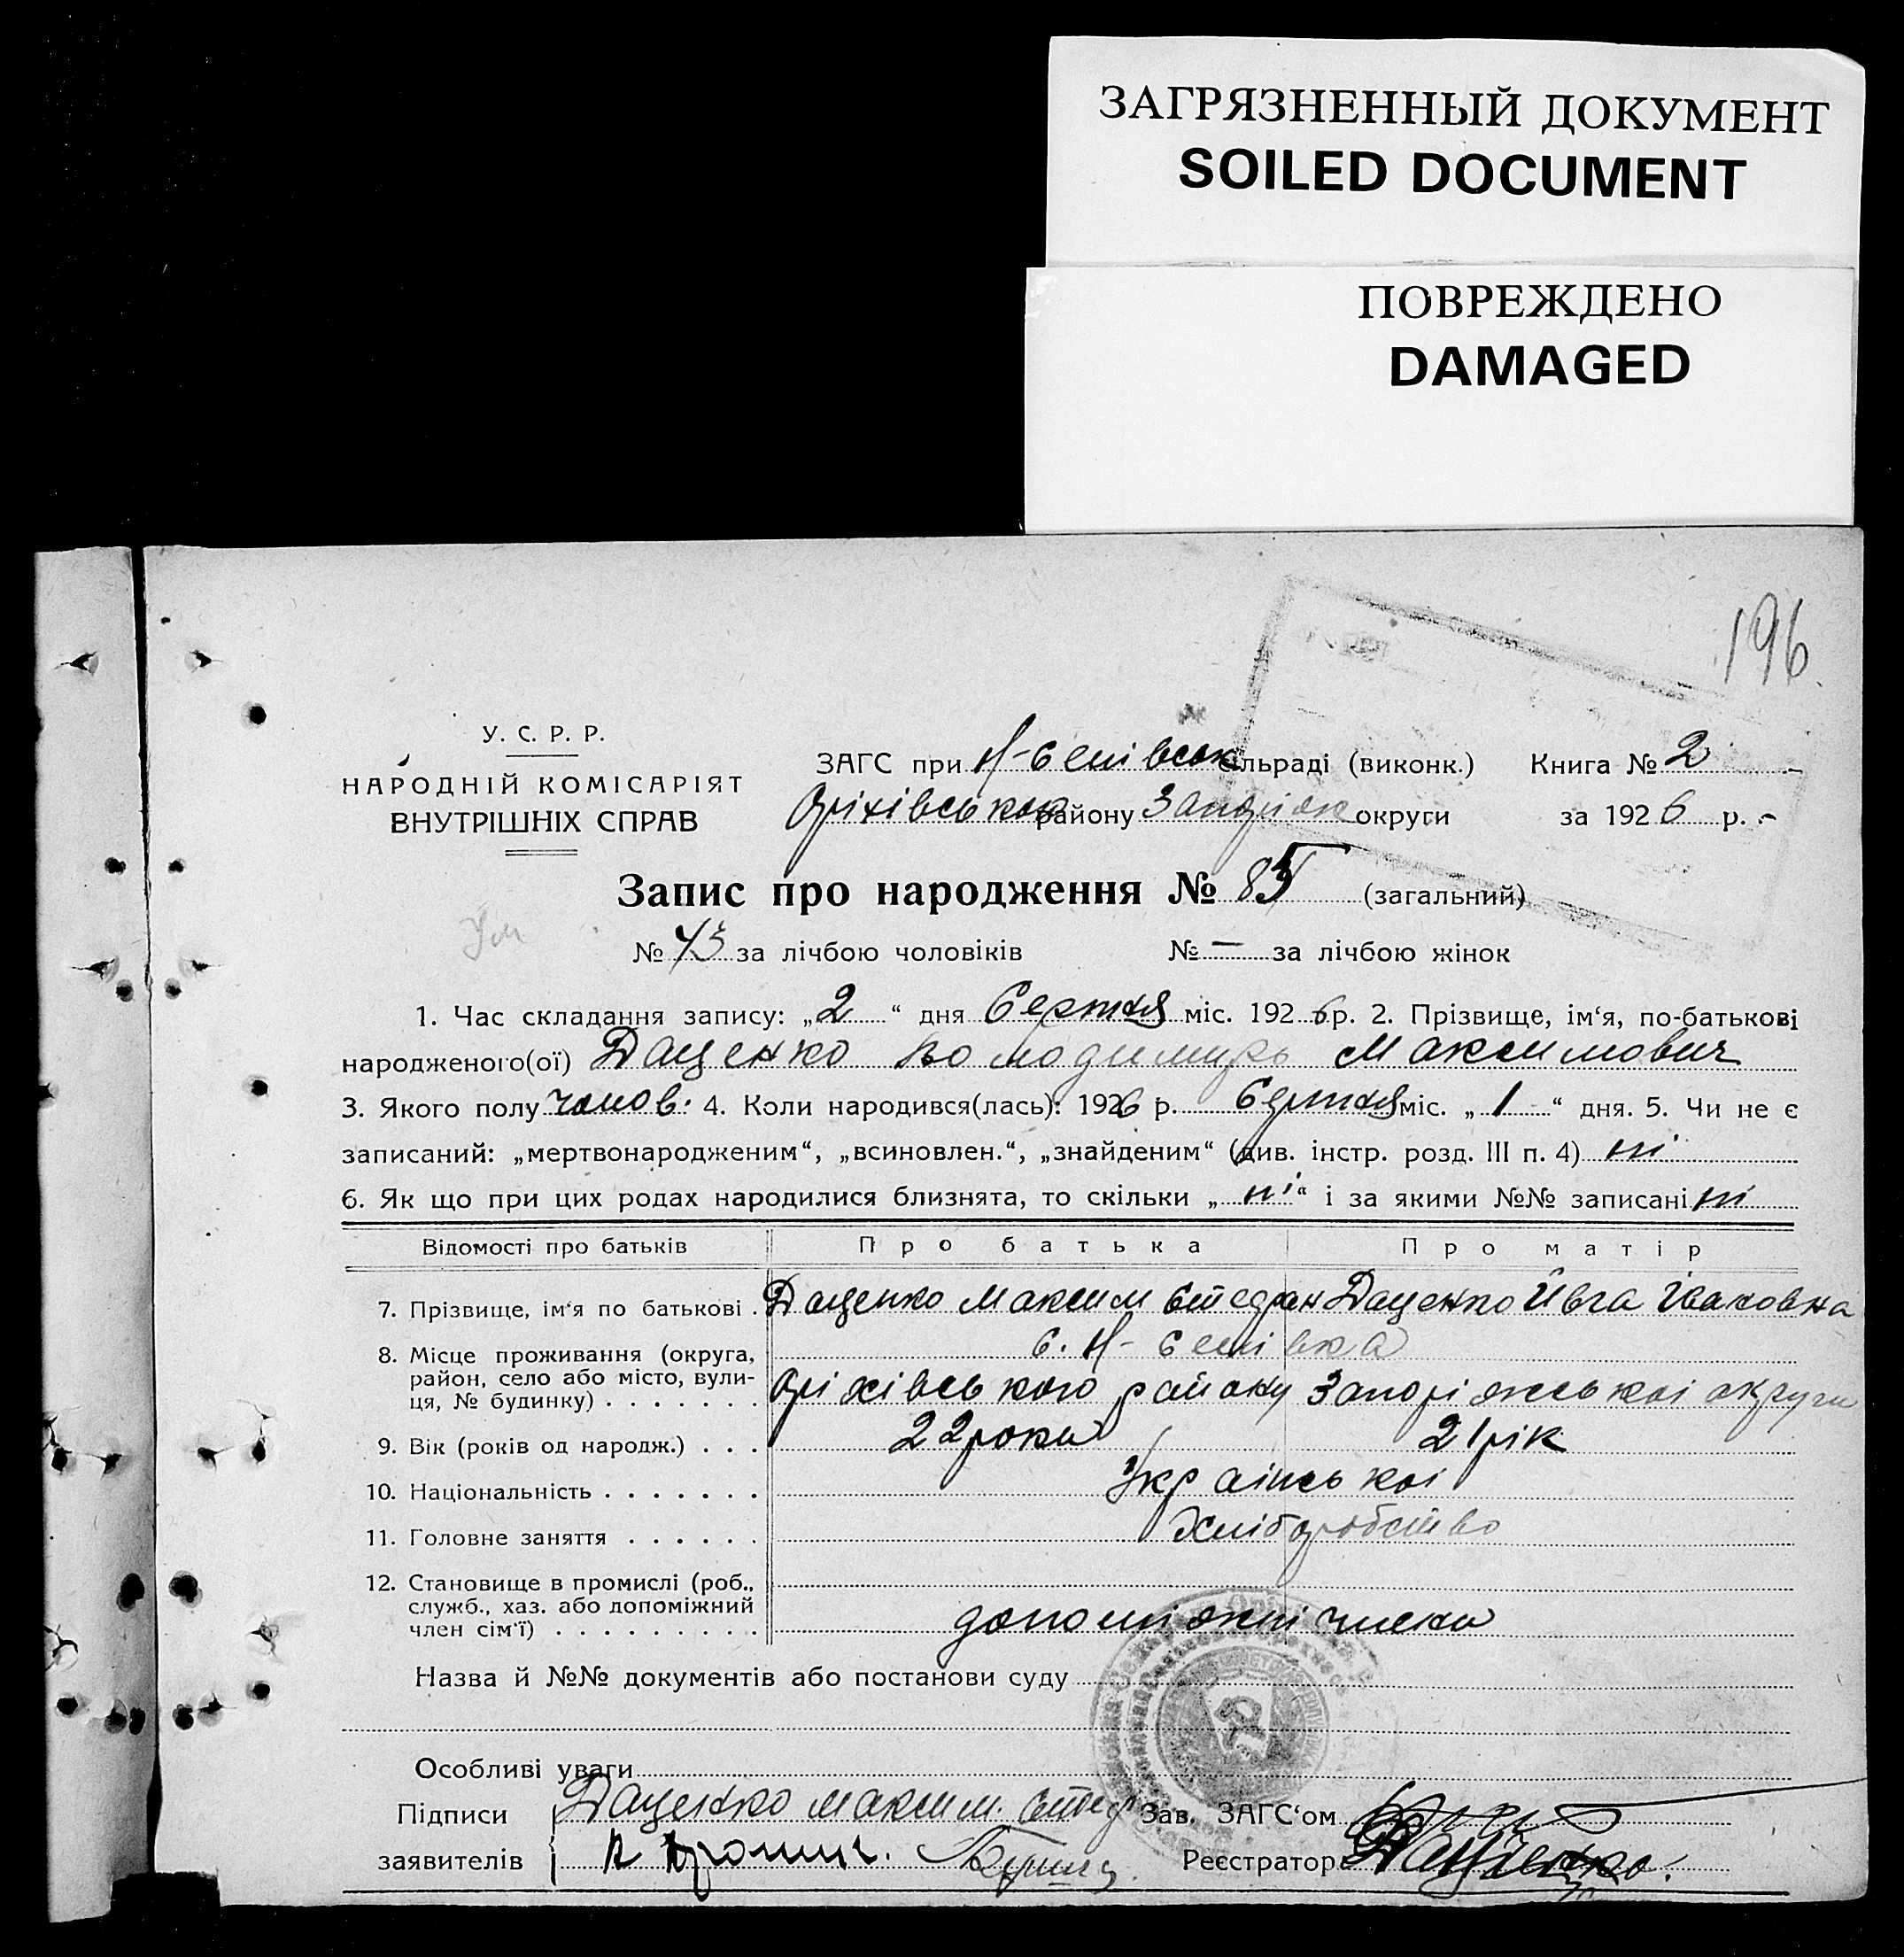 ЗАГРЯЗНЕННЫЙ ДОКУМЕНТ
SOILED DOCUMENT
ПОВРЕЖДЕНО
DAMAGED
196.
У. С. Р. Р.
НАРОДНІЙ КОМІСАРІЯТ
ВНУТРІШНІХ СПРАВ
ЗАГС при сільраді (виконк.) Книга № 2
Оріхівськог району Запоріж округи за 1926 р.
Запис про народження № 85 (загальний)
№ 43 за лічбою чоловіків № — за лічбою жінок
1. Час складання запису: „2“ дня Серпня міс. 1926 р. 2. Прізвище, ім‘я, по-батькові
народженого(ої) Даценко Володимирь Максимович
3. Якого полу чолов. 4. Коли народився(лась): 1926 р. Серпня міс. „1“ дня. 5. Чи не є
записаний: „мертвонародженим“, „всиновлен.“, „знайденим“ (див. інстр. розд. III п. 4) ні
6. Як що при цих родах народилися близнята, то скільки „ні“ і за якими №№ записані ні
Відомості про батьків Про батька Про матір
7. Прізвище, ім‘я по батькові . Даценко Максим Стефан Даценко Ивга Івановна
8. Місце проживання (округа,
район, село або місто, вули-
ця, № будинку) . . . . . . .
Оріхівського району Запоріжськоі округи
9. Вік (років од народж.) . . . 22 роки 21 рік
10. Національність . . . . . . . Украінськоі
11. Головне заняття . . . . . . Хліборобство
12. Становище в промислі (роб.,
служб., хаз. або допоміжний
член сім‘ї) . . . . . . . . .
допоміжні члени
Назва й №№ документів або постанови суду
Особливі уваги
Підписи Даценко Максим. Стеф Зав. ЗАГС‘ом
заявителів Реєстратор